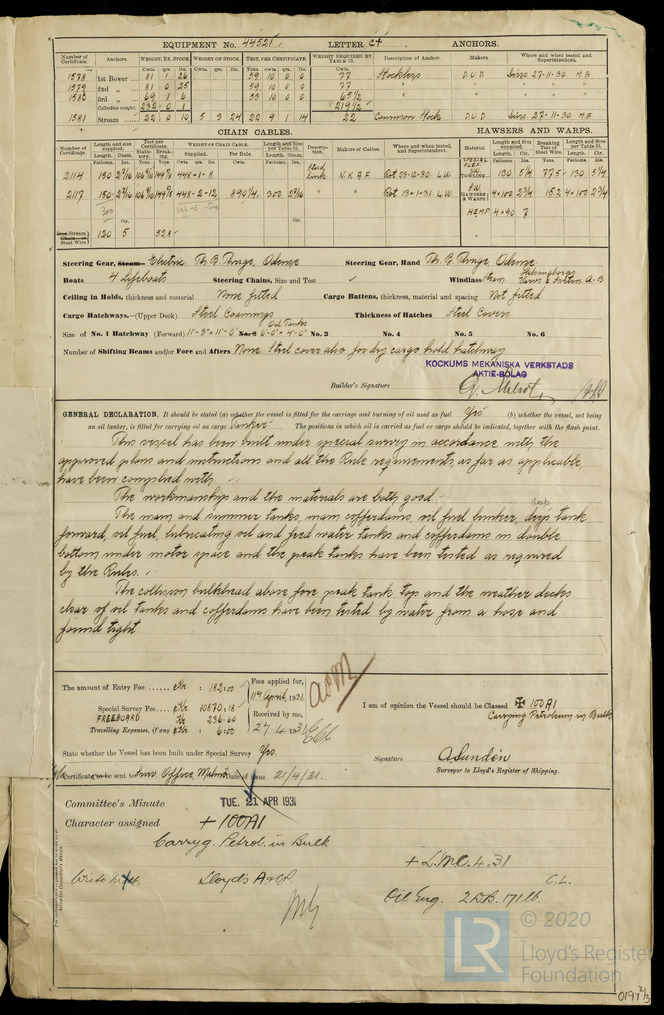 EQUIPMENT No. 44521 LETTER c† ANCHORS.
Number of Certificate. Anchors. WEIGHT, EX. STOCK. WEIGHT OF STOCK. TEST, PER CERTIFICATE. WEIGHT REQUIRED BY TABLE 22. Description of Anchor. Makers. Where and when tested and Superintendent.
Cwts. qrs. lbs. Cwts. qrs. lbs. Tons. cwts. qrs. lbs. Cwts.
1578 1st Bower 81 1 26 59 10 0 0 77 Stockless D.U.D
1579 2nd „ 81 0 25 59 10 0 0 77 " " "
1580 3rd „ 69 1 6 53 10 0 0 65½ " " "
Collective weight 232 0 1 219½
1581 Stream 22 0 10 5 3 24 22 9 1 14 22 Common Stock D.U.D
CHAIN CABLES. HAWSERS AND WARPS.
Number of Certificate. Length and size supplied. Test per Certificate. WEIGHT OF CHAIN CABLE. Length and size per Table 22. Description. Makers of Cables. Where and when tested, and Superintendent. Material Length and Size supplied. Breaking Test of Steel Wire. Length and Size per Table 22.
2114 150 2 9/16 448-1-8 Stud Link N.K.A.F 23-12-30 L.W. 130 5¼ 77.5 130 5¼
2117 150 2 9/16 448-2-12 890¼ 300 2 9/16 " " 13-1-31 L.W. 4×100 2¾ 15.2 4×100 2¾
HEMP 4×90 7
Steel Wire 120 5 52
Steering Gear, Steam Electric Th B Thrige, Odense Steering Gear, Hand Th. B. Thrige, Odense
Boats 4 Lifeboats Steering Chains, Size and Test ✓ Windlass Steam
Ceiling in Holds, thickness and material None fitted Cargo Battens, thickness, material and spacing Not fitted
Cargo Hatchways.—(Upper Deck) Steel Coamings Thickness of Hatches Steel Covers
Oil Tanks
Size of No. 1 Hatchway (Forward) 11'-3" × 11'-0" No. 2 6'-0" × 4'-0" No. 3 No. 4 No. 5 No. 6
Number of Shifting Beams and/or Fore and Afters None Steel cover also for dry cargo hold hatchway
KOCKUMS MEKANISKA VERKSTADS
AKTIE-BOLAG
Builder's Signature
GENERAL DECLARATION. It should be stated (a) whether the vessel is fitted for the carriage and burning of oil used as fuel Yes (b) whether the vessel, not being
an oil tanker, is fitted for carrying oil as cargo Tanker The positions in which oil is carried as fuel or cargo should be indicated, together with the flash point.
This vessel has been built under special survey in accordance with the
approved plans and instructions and all the Rule requirements, as far as applicable,
have been complied with
The workmanship and the materials are both good
The main and summer tanks, main cofferdams, oil fuel bunker, deep tank
forward, oil fuel, lubricating oil and feed water tanks and cofferdams in double
bottom under motor space and the peak tanks have been tested as required
by the Rules.
The collision bulkhead above fore peak tank top and the weather decks
clear of oil tanks and cofferdams have been tested by water from a hose and
found tight
The amount of Entry Fee ...... Kr : 182:00 Fees applied for,
11th April, 1931
Special Survey Fee.... Kr 10870:18
FREEBOARD Kr 236:60 Received by me,
Travelling Expenses, if any Kr : 6:00 27.4.1931
I am of opinion the Vessel should be Classed ✠ 100A1
Carrying Petroleum in Bulk
State whether the Vessel has been built under Special Survey Yes.
Signature A Sundén
Surveyor to Lloyd's Register of Shipping.
Certificate to be sent to Surv. Office, Malmö Date of issue 21/4/31.
Committee's Minute TUE. 21 APR 1931
Character assigned + 100A1
Carryg. Petrol. in Bulk
+ L.M.C. 4.31
Lloyd's A & C.P.
C.L.
Oil Eng. 2 D.B. 171 lb.
LR © 2020
Lloyd's Register
Foundation